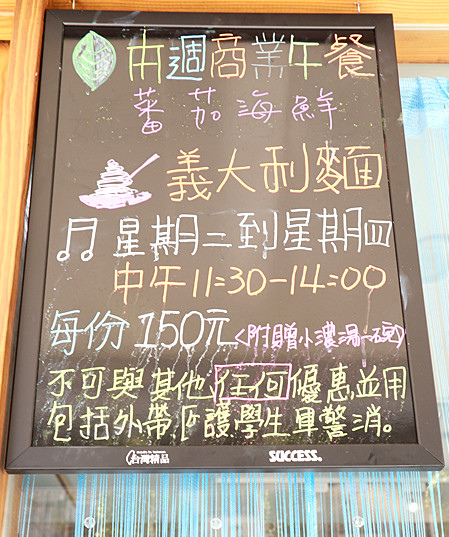 本週商業午餐
蕃茄海鮮
義大利麵
星期二到星期四
中午11:30-14:00
每份150元<附贈小濃湯一碗>
不可與其他任何優惠並用
包括外帶医護學生軍警消。
台灣精品 SUCCESS.